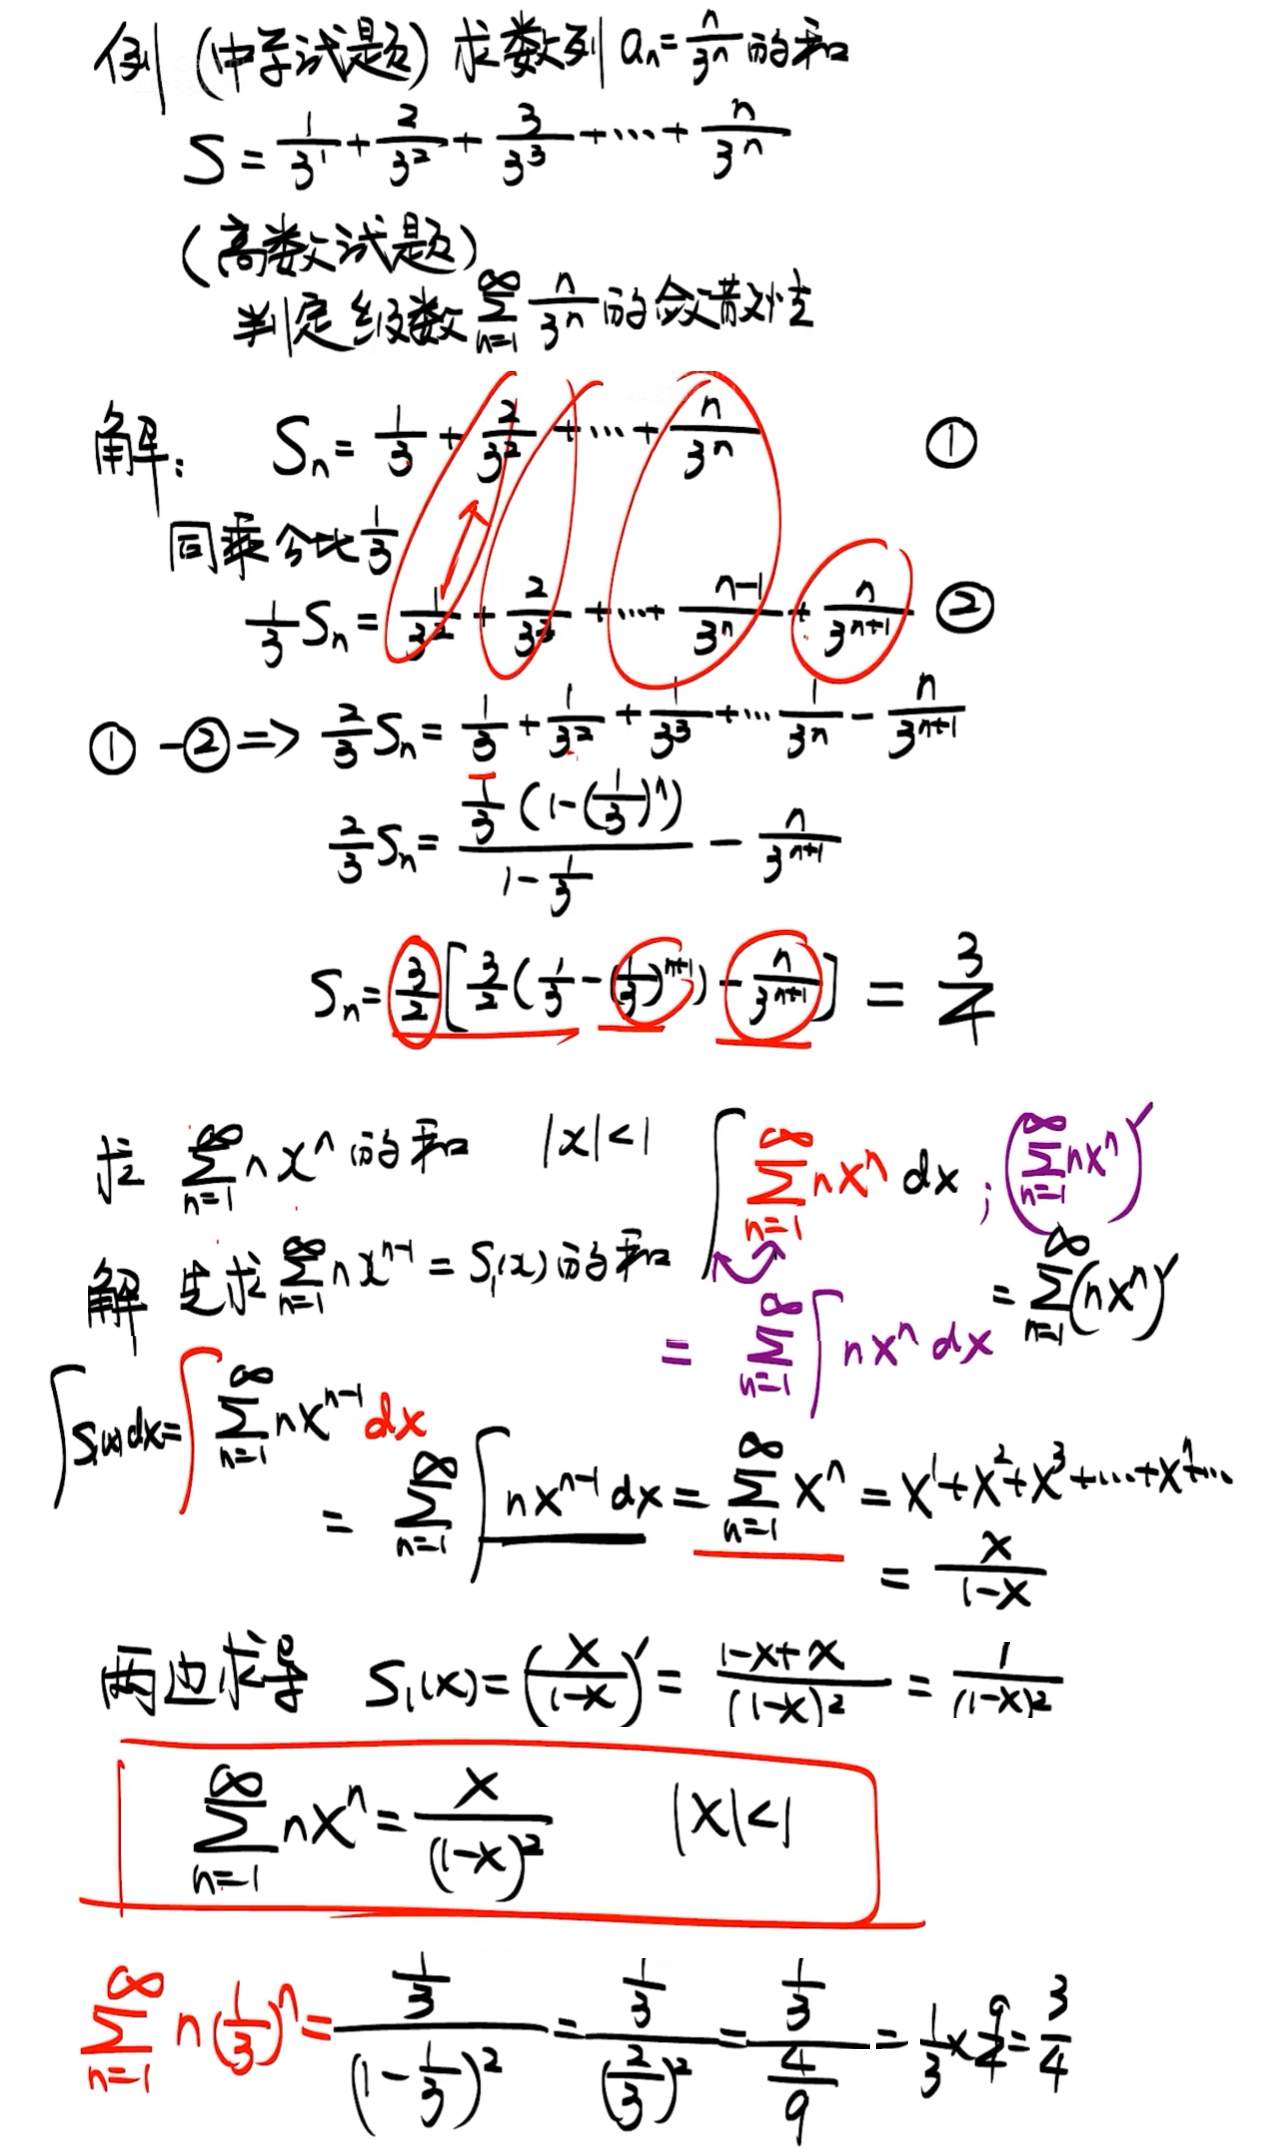 例 (中学试题) 求数列 aₙ = n/3ⁿ 的和
S = 1/3¹ + 2/3² + 3/3³ + ⋯ + n/3ⁿ
(高数试题)
判定级数 ∑_{n=1}^{∞} n/3ⁿ 的敛散性
解: Sₙ = 1/3 + 2/3² + ⋯ + n/3ⁿ ①
同乘公比 1/3
1/3 Sₙ = 1/3² + 2/3³ + ⋯ + (n-1)/3ⁿ + n/3ⁿ⁺¹ ②
① - ② => 2/3 Sₙ = 1/3 + 1/3² + 1/3³ + ⋯ 1/3ⁿ - n/3ⁿ⁺¹
2/3 Sₙ = (1/3 (1-(1/3)ⁿ))/(1 - 1/3) - n/3ⁿ⁺¹
Sₙ = 3/2 [3/2 (1/3 - (1/3)ⁿ⁺¹) - n/3ⁿ⁺¹] = 3/4
求 ∑_{n=1}^{∞} n xⁿ 的和 |x|<1
∫ ∑_{n=1}^{∞} nxⁿ dx ; (∑_{n=1}^{∞} nxⁿ)′
解 先求 ∑_{n=1}^{∞} n xⁿ⁻¹ = S₁(x) 的和
= ∑_{n=1}^{∞} ∫ nxⁿ dx
= ∑_{n=1}^{∞} (nxⁿ)′
∫ S₁(x) dx = ∫ ∑_{n=1}^{∞} nxⁿ⁻¹ dx
= ∑_{n=1}^{∞} ∫ nxⁿ⁻¹ dx = ∑_{n=1}^{∞} xⁿ = x¹ + x² + x³ + ⋯ + xⁿ + ⋯
= x/(1-x)
两边求导 S₁(x) = (x/(1-x))′ = (1-x+x)/(1-x)² = 1/(1-x)²
∑_{n=1}^{∞} nxⁿ = x/(1-x)² |x|<1
∑_{n=1}^{∞} n(1/3)ⁿ = (1/3)/(1-1/3)² = (1/3)/(2/3)² = (1/3)/(4/9) = 1/3 × 9/4 = 3/4